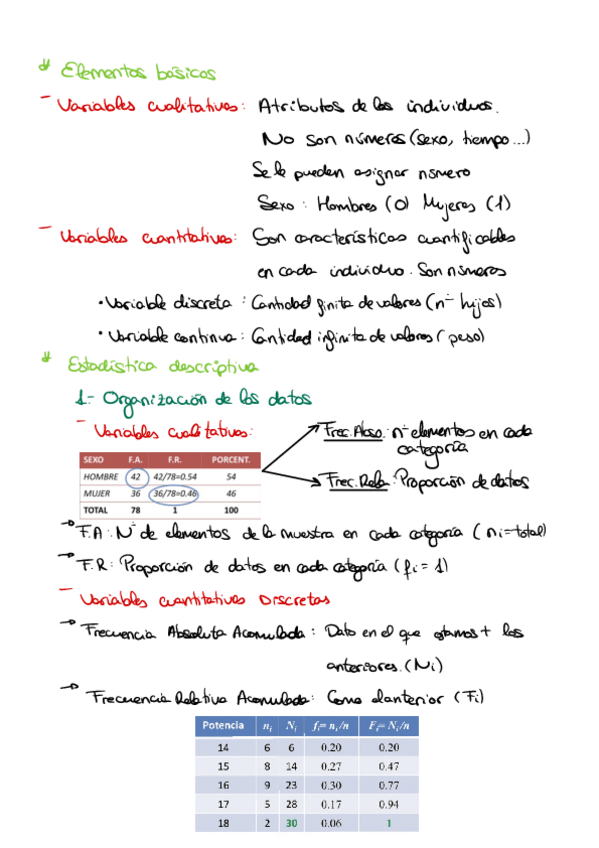 Elementos básicos
- Variables cualitativas: Atributos de los individuos.
No son números (sexo, tiempo...)
Se le pueden asignar número
Sexo: Hombres (0) Mujeres (1)
- Variables cuantitativas: Son características cuantificables
en cada individuo. Son números
• Variable discreta: Cantidad finita de valores (nº hijos)
• Variable continua: Cantidad infinita de valores (peso)
Estadística descriptiva
1- Organización de los datos
- Variables cualitativas:
Frec. Abso: nº elementos en cada
categoría
SEXO F.A. F.R. PORCENT.
HOMBRE 42 42/78=0.54 54
MUJER 36 36/78=0.46 46
TOTAL 78 1 100
Frec. Rela: Proporción de datos
→ F.A: Nº de elementos de la muestra en cada categoría (ni=total)
→ F.R: Proporción de datos en cada categoría (fi=1)
- Variables cuantitativas Discretas
→ Frecuencia Absoluta Acumulada: Dato en el que estamos + los
anteriores. (Ni)
→ Frecuencia Relativa Acumulada: Como el anterior (Fi)
Potencia ni Ni fi= ni/n Fi= Ni/n
14 6 6 0.20 0.20
15 8 14 0.27 0.47
16 9 23 0.30 0.77
17 5 28 0.17 0.94
18 2 30 0.06 1